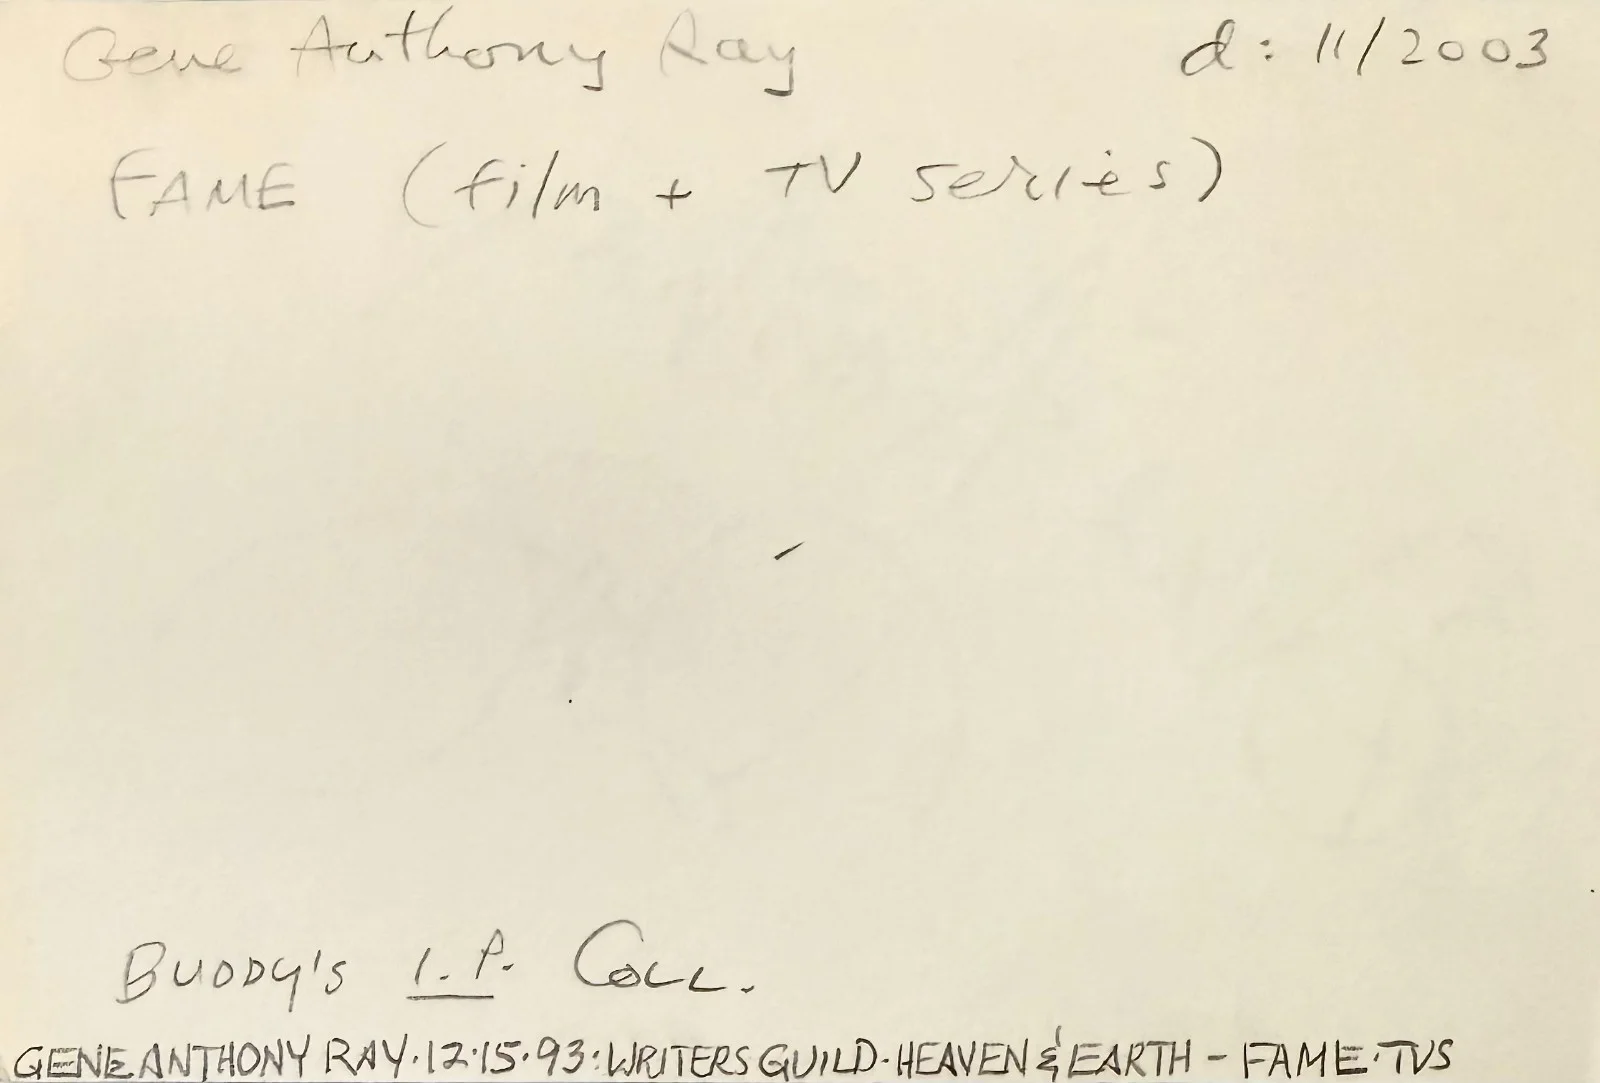 Gene Anthony Ray d: 11/2003
FAME (film + TV series)
BUDDY'S I.P. COLL.
GENE ANTHONY RAY·12·15·93:WRITERS GUILD·HEAVEN & EARTH - FAME·TVS